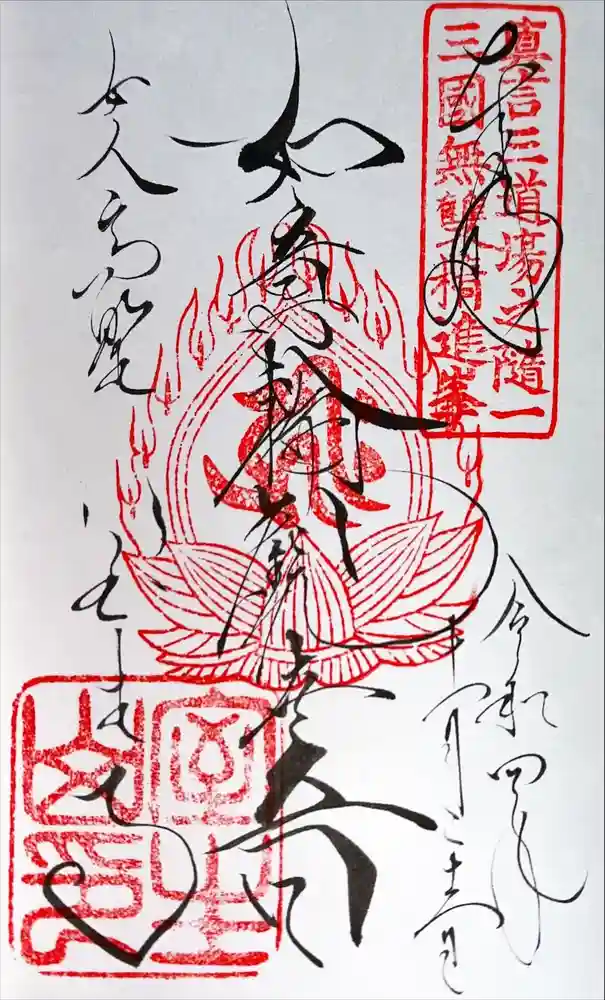 真言三道場之隨一
三國無雙精進峯
奉拝
令和四年
十一月二十六日
如意輪観世音
女人高野
室生寺
室生
山印